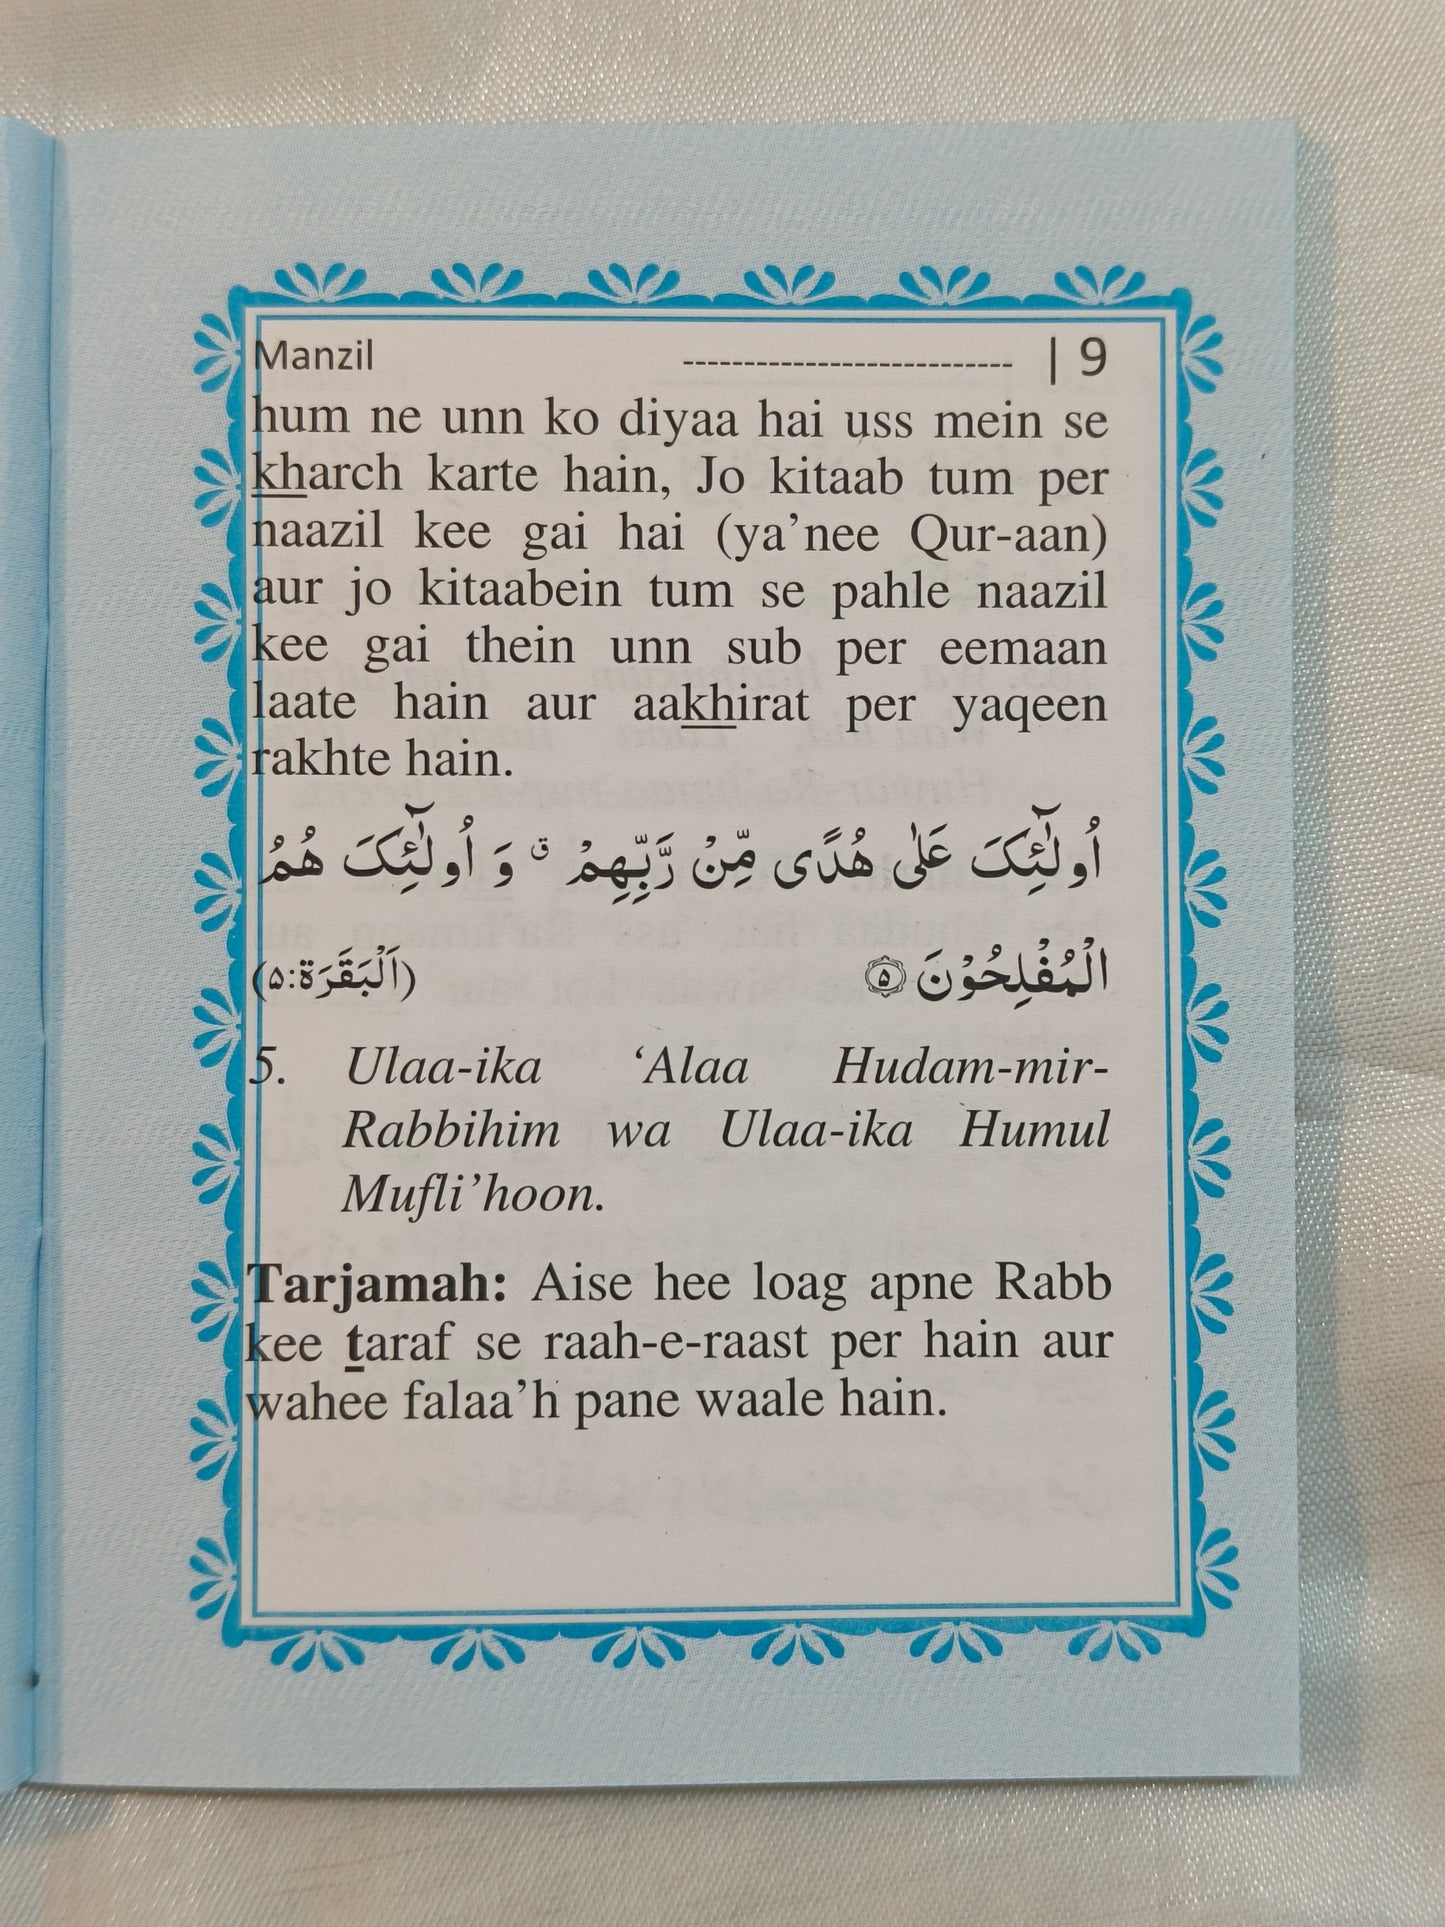 Manzil --------------------------- | 9
hum ne unn ko diyaa hai uss mein se
kharch karte hain, Jo kitaab tum per
naazil kee gai hai (ya’nee Qur-aan)
aur jo kitaabein tum se pahle naazil
kee gai thein unn sub per eemaan
laate hain aur aakhirat per yaqeen
rakhte hain.
اُولٰٓئِکَ عَلٰی هُدًی مِّنْ رَّبِّهِمْ ۗ وَ اُولٰٓئِکَ هُمُ
الْمُفْلِحُوْنَ ۝۵ (اَلْبَقَرَة:۵)
5. Ulaa-ika ‘Alaa Hudam-mir-
Rabbihim wa Ulaa-ika Humul
Mufli’hoon.
Tarjamah: Aise hee loag apne Rabb
kee taraf se raah-e-raast per hain aur
wahee falaa’h pane waale hain.